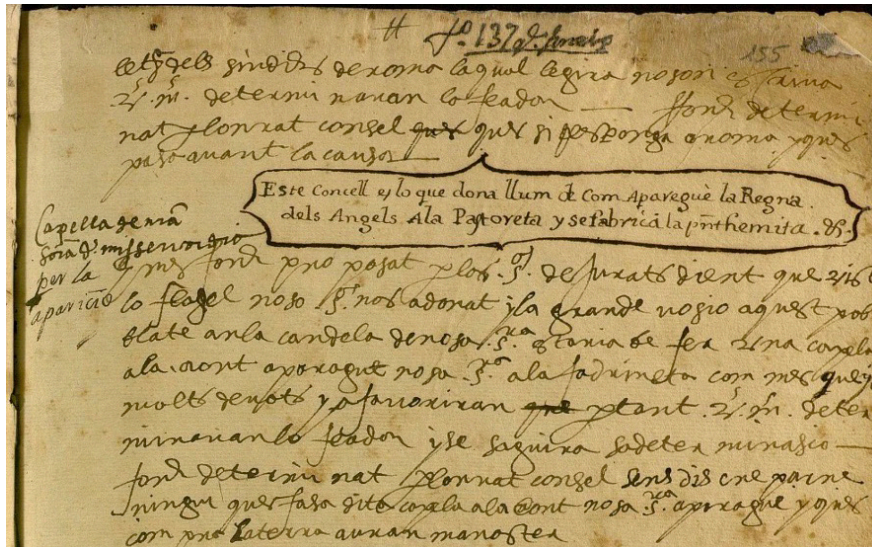 fº 137
155
dels sindichs de roma laqual legira
determinaran lo feador fonch determi
nat p lonrat consel que ques si responga a roma y ques
pasa auant la causa
Este Concell es lo que dona llum de Com Aparegùe la Regna
dels Angels Ala Pastoreta y se fabricà la pñt hemita.
Capella de nrã
sorã d. misericordia
per la
aparicio
mes fonch pro posat p los Srs de jurats dient que vist
lo flagel noso Sr nos adonat y la grande uosio aquest pob
blate an la candela de nosa Sra staria be fer una capela
ala mont aparague nosa Sra ala fadrineta com mes que y a
molts deuots y a fauoriran que p tant v. m. deter
minauan lo feador y se saguira sa determinasco
fonch determi nat p lonrat consel sens discre pacne
ningu ques fasa dita capela ala mont nosa Sra aparague y ques
com pra la terra auran manoster